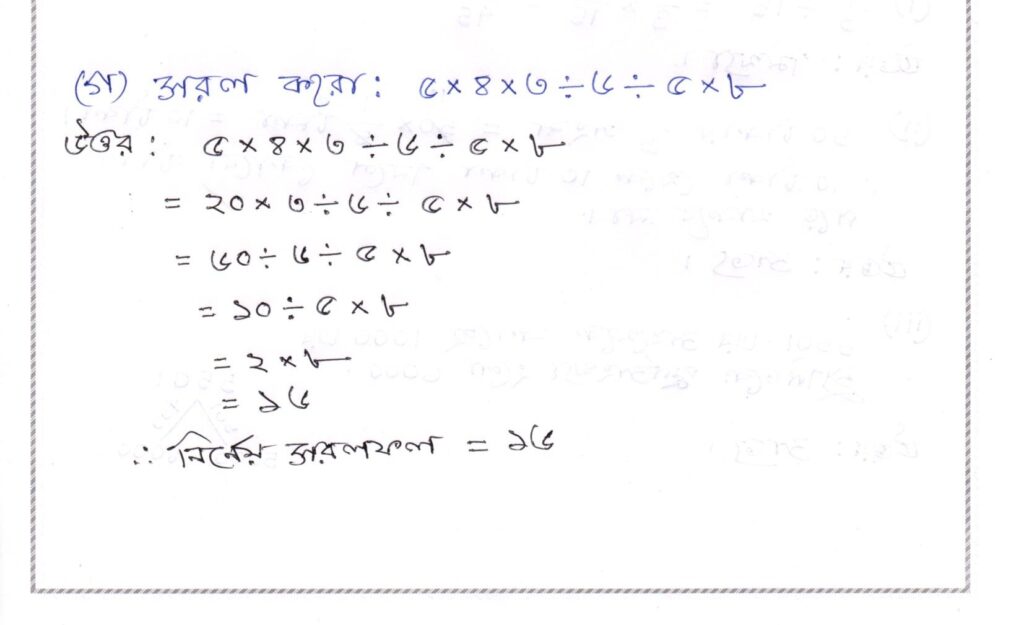 (গ) সরল করো: ৫×৪×৩÷৬÷৫×৮
উত্তর: ৫×৪×৩÷৬÷৫×৮
= ২০×৩÷৬÷৫×৮
= ৬০÷৬÷৫×৮
= ১০÷৫×৮
= ২×৮
= ১৬
∴ নির্নেয় সরলফল = ১৬